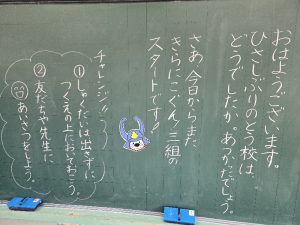 おはようございます。
ひさしぶりのとう校は
どうでしたか。あつかったでしょう。
さあ、今日からまた
きらにこぐん、三組の
スタートです！
チャレンジ!!
①しゅくだいは出さずに
つくえの上においておこう。
②友だちや先生に
あいさつをしよう。